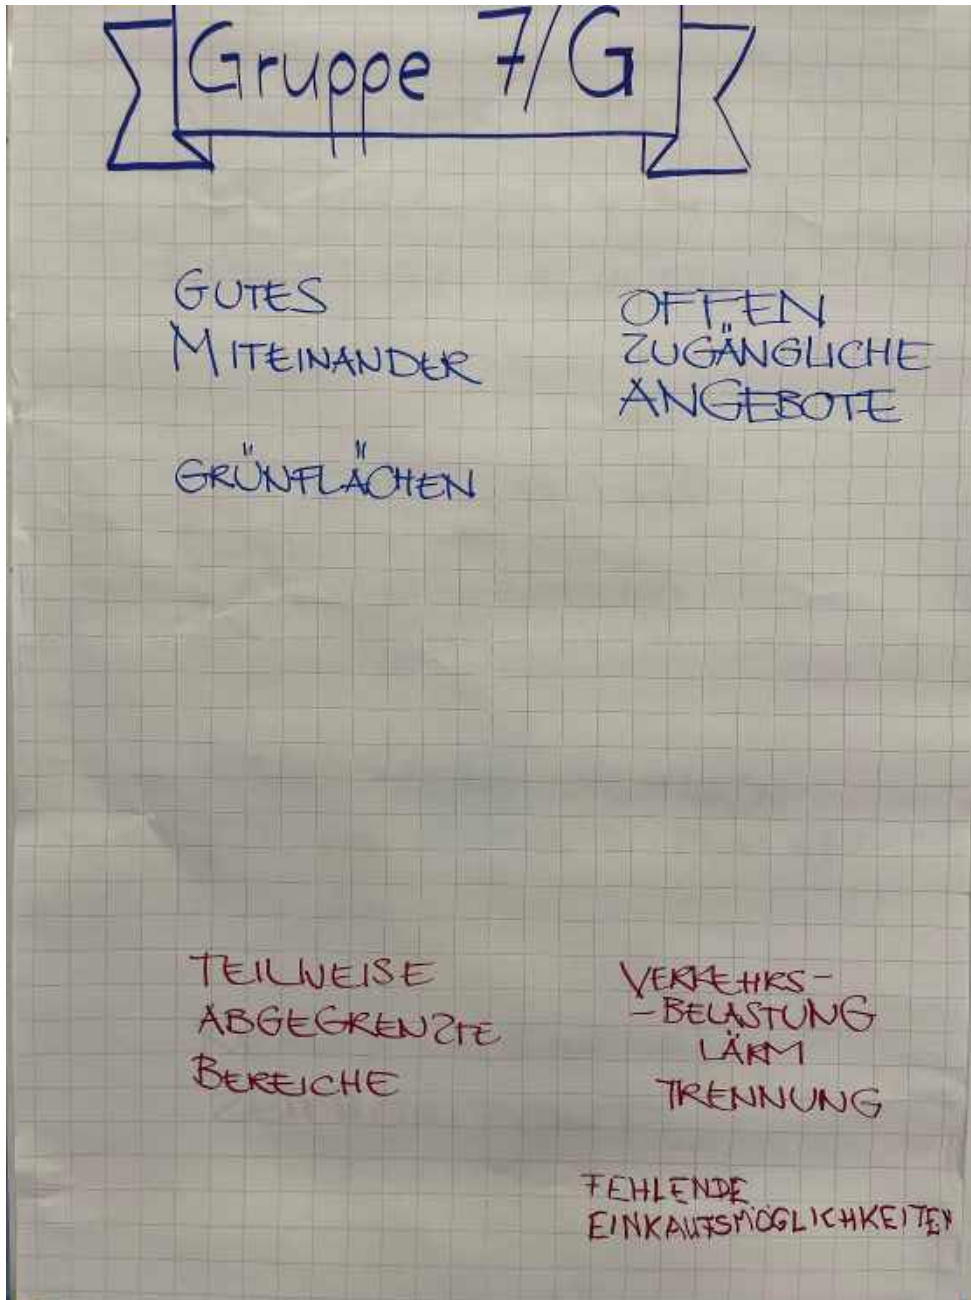 Gruppe 7/G
GUTES
MITEINANDER
GRÜNFLÄCHEN
OFFEN
ZUGÄNGLICHE
ANGEBOTE
TEILWEISE
ABGEGRENZTE
BEREICHE
VERKEHRS-
-BELASTUNG
LÄRM
TRENNUNG
FEHLENDE
EINKAUFSMÖGLICHKEITEN